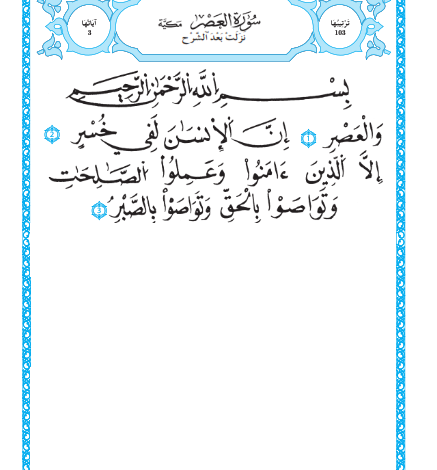 تَرْتِيبُهَا
103
سُورَةُ الْعَصْرِ مَكِّيَّة
نَزَلَتْ بَعْدَ الشَّرْح
آيَاتُهَا
3
بِسْمِ ٱللَّهِ ٱلرَّحْمَٰنِ ٱلرَّحِيمِ
وَالْعَصْرِ 1 إِنَّ ٱلْإِنسَٰنَ لَفِي خُسْرٍ 2
إِلَّا ٱلَّذِينَ ءَامَنُوا۟ وَعَمِلُوا۟ ٱلصَّٰلِحَٰتِ
وَتَوَاصَوْا۟ بِٱلْحَقِّ وَتَوَاصَوْا۟ بِٱلصَّبْرِ 3